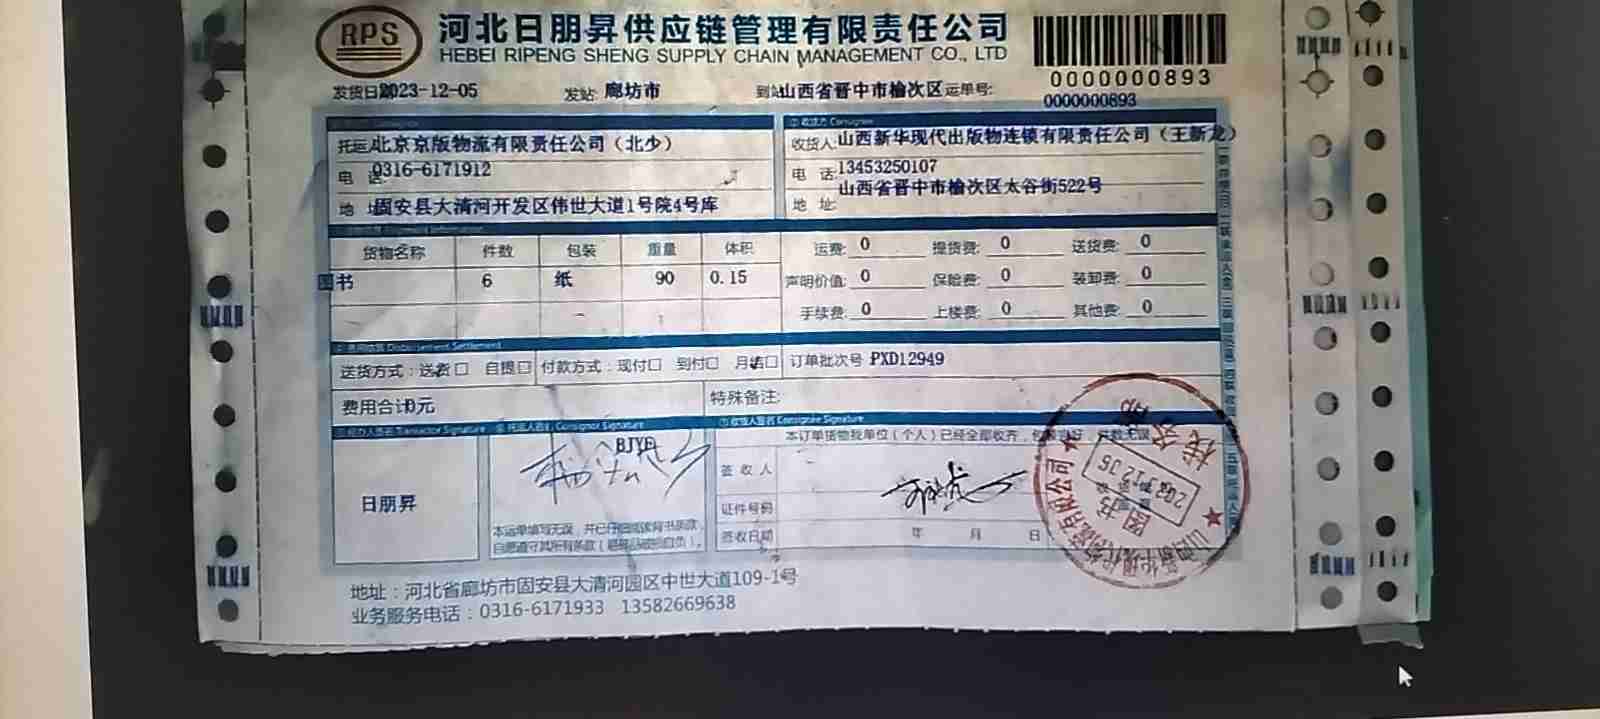 RPS
河北日朋昇供应链管理有限责任公司
HEBEI RIPENG SHENG SUPPLY CHAIN MANAGEMENT CO., LTD
0000000893
发货日期 2023-12-05 发站: 廊坊市 到站 山西省晋中市榆次区 运单号: 0000000893
② 收货方 Consignee
托运人 北京京版物流有限责任公司（北少） 收货人: 山西新华现代出版物连锁有限责任公司（王新龙）
电 话 0316-6171912 电 话: 13453250107
地 址 固安县大清河开发区伟世大道1号院4号库 地 址: 山西省晋中市榆次区太谷街522号
货物名称 件数 包装 重量 体积 运费: 0 提货费: 0 送货费: 0
图书 6 纸 90 0.15 声明价值: 0 保险费: 0 装卸费: 0
手续费: 0 上楼费: 0 其他费: 0
Disbursement Settlement
送货方式：送货□ 自提□ 付款方式：现付□ 到付□ 月结□ 订单批次号 PXD12949
费用合计 0元 特殊备注:
经办人签名 Transactor Signature 托运人签名 Consignor Signature 收货人签名 Consignee Signature
本订单货物我单位（个人）已经全部收齐，
日朋昇 BJYF 签 收 人
证件号码
本运单填写无误，并已仔细阅读背书条款，
自愿遵守其所有条款
签收日期 年 月 日
图书
2023.12.05
业务部
地址：河北省廊坊市固安县大清河园区中世大道109-1号
业务服务电话：0316-6171933 13582669638